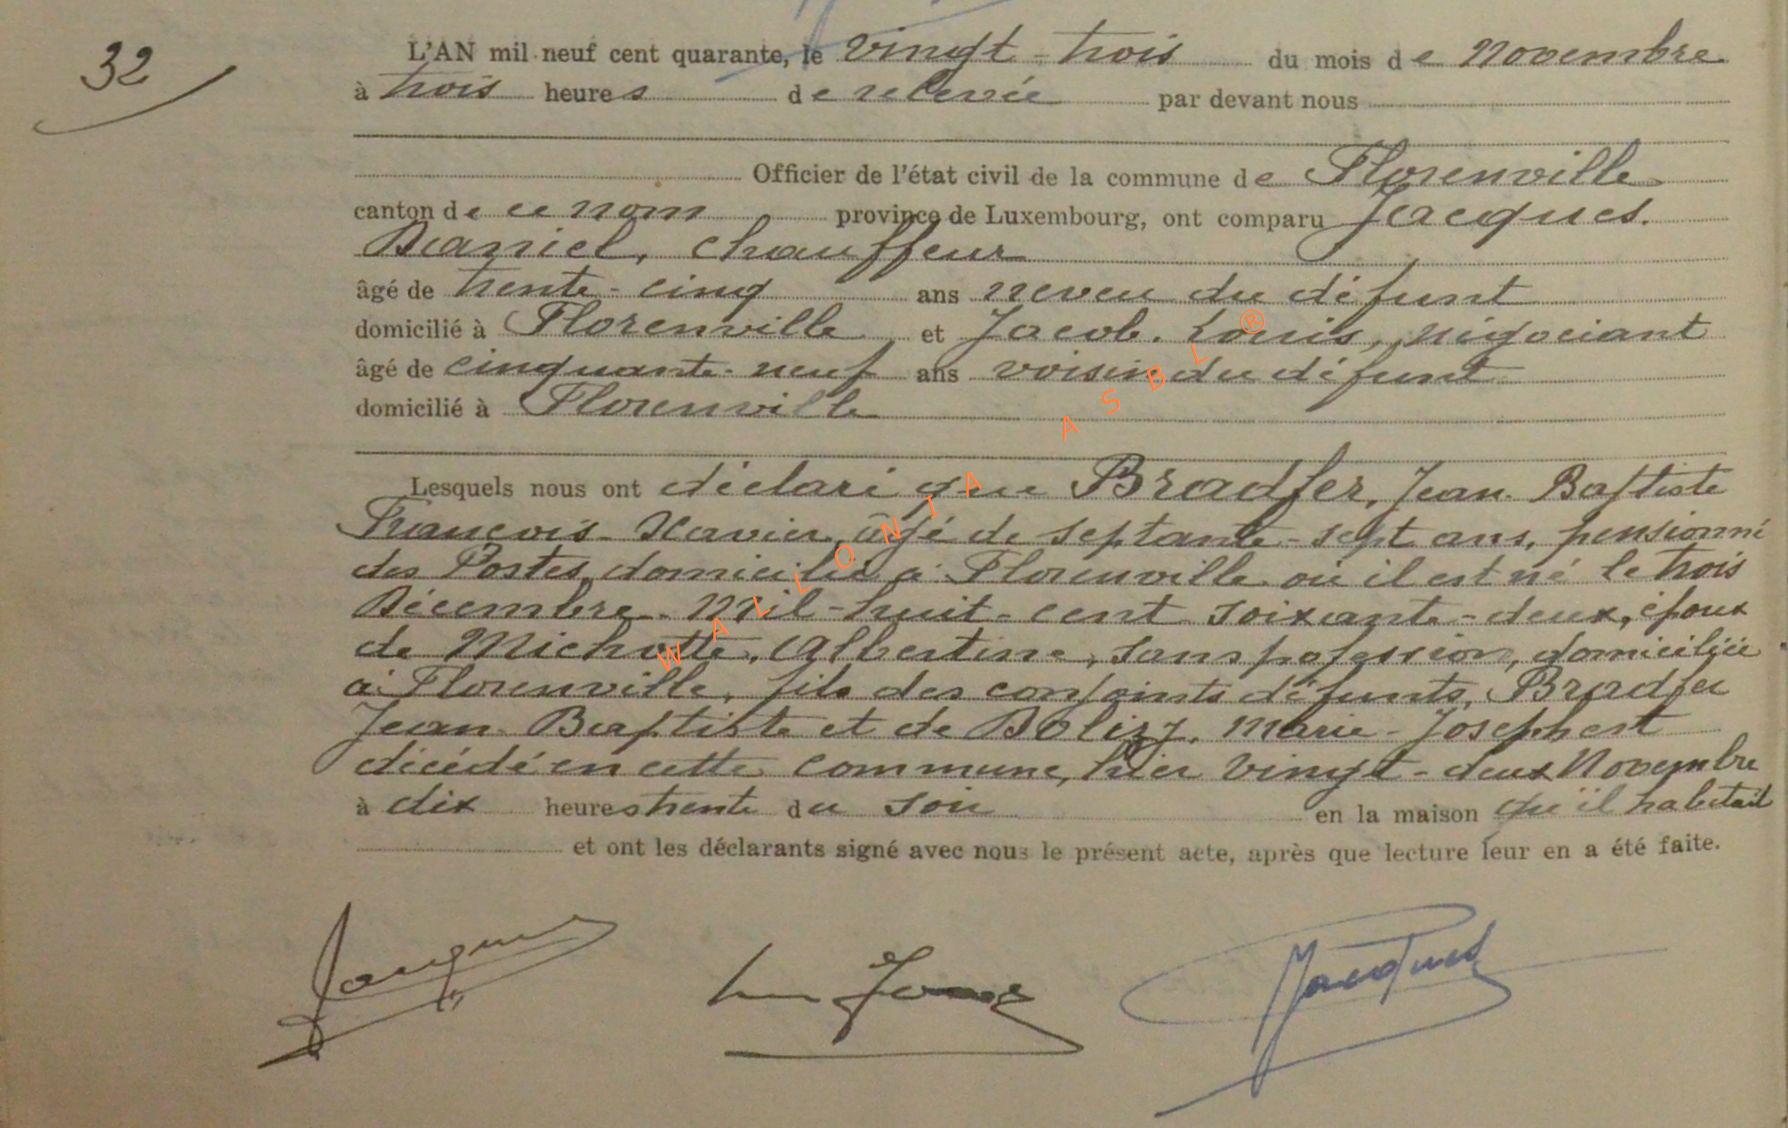 32
L'AN mil neuf cent quarante, le vingt-trois du mois de Novembre
à trois heures de relevée par devant nous
Officier de l'état civil de la commune de Florenville
canton de ce nom province de Luxembourg, ont comparu Jacques.
Daniel, chauffeur
âgé de trente-cinq ans neveu du défunt
domicilié à Florenville et Jacob. Louis, négociant
âgé de cinquante-neuf ans voisin du défunt
domicilié à Florenville
Lesquels nous ont déclaré que Bradfer, Jean-Baptiste
François-Xavier, âgé de septante-sept ans, pensionné
des Postes, domicilié à Florenville où il est né le trois
Décembre Mil-huit-cent soixante-deux, époux
de Michotte, Albertine, sans pofession, domiciliée
à Florenville, fils des conjoints défunts, Bradfer
Jean Baptiste et de Bolizy, Marie-Josèphe est
décédé en cette commune, hier vingt-deux Novembre
à dix heures trente du soir en la maison qu'il habitait
et ont les déclarants signé avec nous le présent acte, après que lecture leur en a été faite.
Jacques
Jacques
WALLONIA ASBL ®